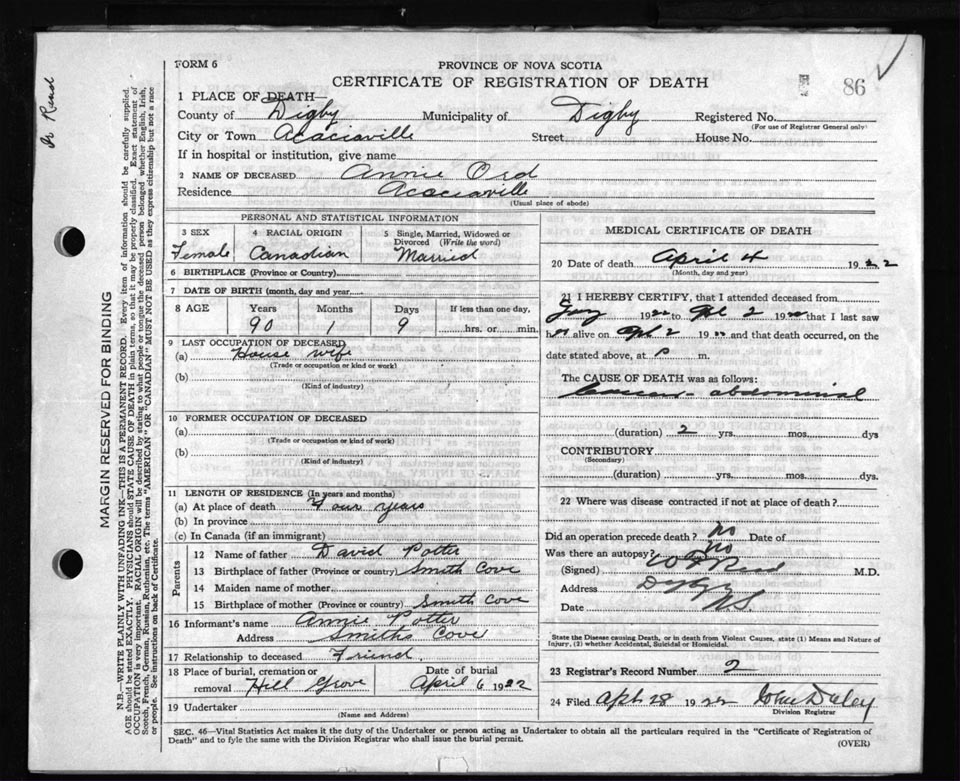 Dr Read
FORM 6
PROVINCE OF NOVA SCOTIA
CERTIFICATE OF REGISTRATION OF DEATH
86
1 PLACE OF DEATH—
County of Digby Municipality of Digby Registered No.
(For use of Registrar General only)
City or Town Acaciaville Street House No.
If in hospital or institution, give name
2 NAME OF DECEASED Annie Ord
Residence Acaciaville
(Usual place of abode)
MARGIN RESERVED FOR BINDING
N.B.—WRITE PLAINLY WITH UNFADING INK—THIS IS A PERMANENT RECORD. Every item of information should be carefully supplied.
AGE should be stated EXACTLY. PHYSICIANS should STATE CAUSE OF DEATH in plain terms, so that it may be properly classified. Exact statement of
OCCUPATION is very important. RACIAL ORIGIN will be described by stating to what people or tongue the deceased person belonged whether English, Irish,
Scotch, French, German, Russian, Ruthenian, etc. The terms "AMERICAN" OR "CANADIAN" MUST NOT BE USED as they express citizenship but not a race
or people. See instructions on back of Certificate.
PERSONAL AND STATISTICAL INFORMATION
3 SEX 4 RACIAL ORIGIN 5 Single, Married, Widowed or
Divorced (Write the word)
Female Canadian Married
6 BIRTHPLACE (Province or Country)
7 DATE OF BIRTH (month, day and year)
8 AGE Years Months Days If less than one day,
90 1 9 hrs. or min.
9 LAST OCCUPATION OF DECEASED
(a) House wife
(Trade or occupation or kind or work)
(b)
(Kind of industry)
10 FORMER OCCUPATION OF DECEASED
(a)
(Trade or occupation or kind of work)
(b)
(Kind of industry)
11 LENGTH OF RESIDENCE (In years and months)
(a) At place of death Four years
(b) In province
(c) In Canada (if an immigrant)
Parents
12 Name of father David Potter
13 Birthplace of father (Province or country) Smith Cove
14 Maiden name of mother
15 Birthplace of mother (Province or country) Smith Cove
16 Informant's name Annie Potter
Address Smiths Cove
17 Relationship to deceased Friend
18 Place of burial, cremation or removal Hill Grove Date of burial April 6 1922
19 Undertaker
(Name and Address)
MEDICAL CERTIFICATE OF DEATH
20 Date of death April 4 1922
(Month, day and year)
21 I HEREBY CERTIFY, that I attended deceased from
Jany 1922 to Apl 2 1922 that I last saw
h er alive on Apl 2 1922 and that death occurred, on the
date stated above, at P m.
The CAUSE OF DEATH was as follows:
Cancer - abdominal
(duration) 2 yrs. mos. dys
CONTRIBUTORY
(Secondary)
(duration) yrs. mos. dys.
22 Where was disease contracted if not at place of death?
Did an operation precede death? no Date of
Was there an autopsy? no
(Signed) W F Read M.D.
Address Digby
Date NS
State the Disease causing Death, or in death from Violent Causes, state (1) Means and Nature of
Injury, (2) whether Accidental, Suicidal or Homicidal.
23 Registrar's Record Number 2
24 Filed Apl 28 1922 John Daley
Division Registrar
SEC. 46—Vital Statistics Act makes it the duty of the Undertaker or person acting as Undertaker to obtain all the particulars required in the "Certificate of Registration of
Death" and to fyle the same with the Division Registrar who shall issue the burial permit.
(OVER)